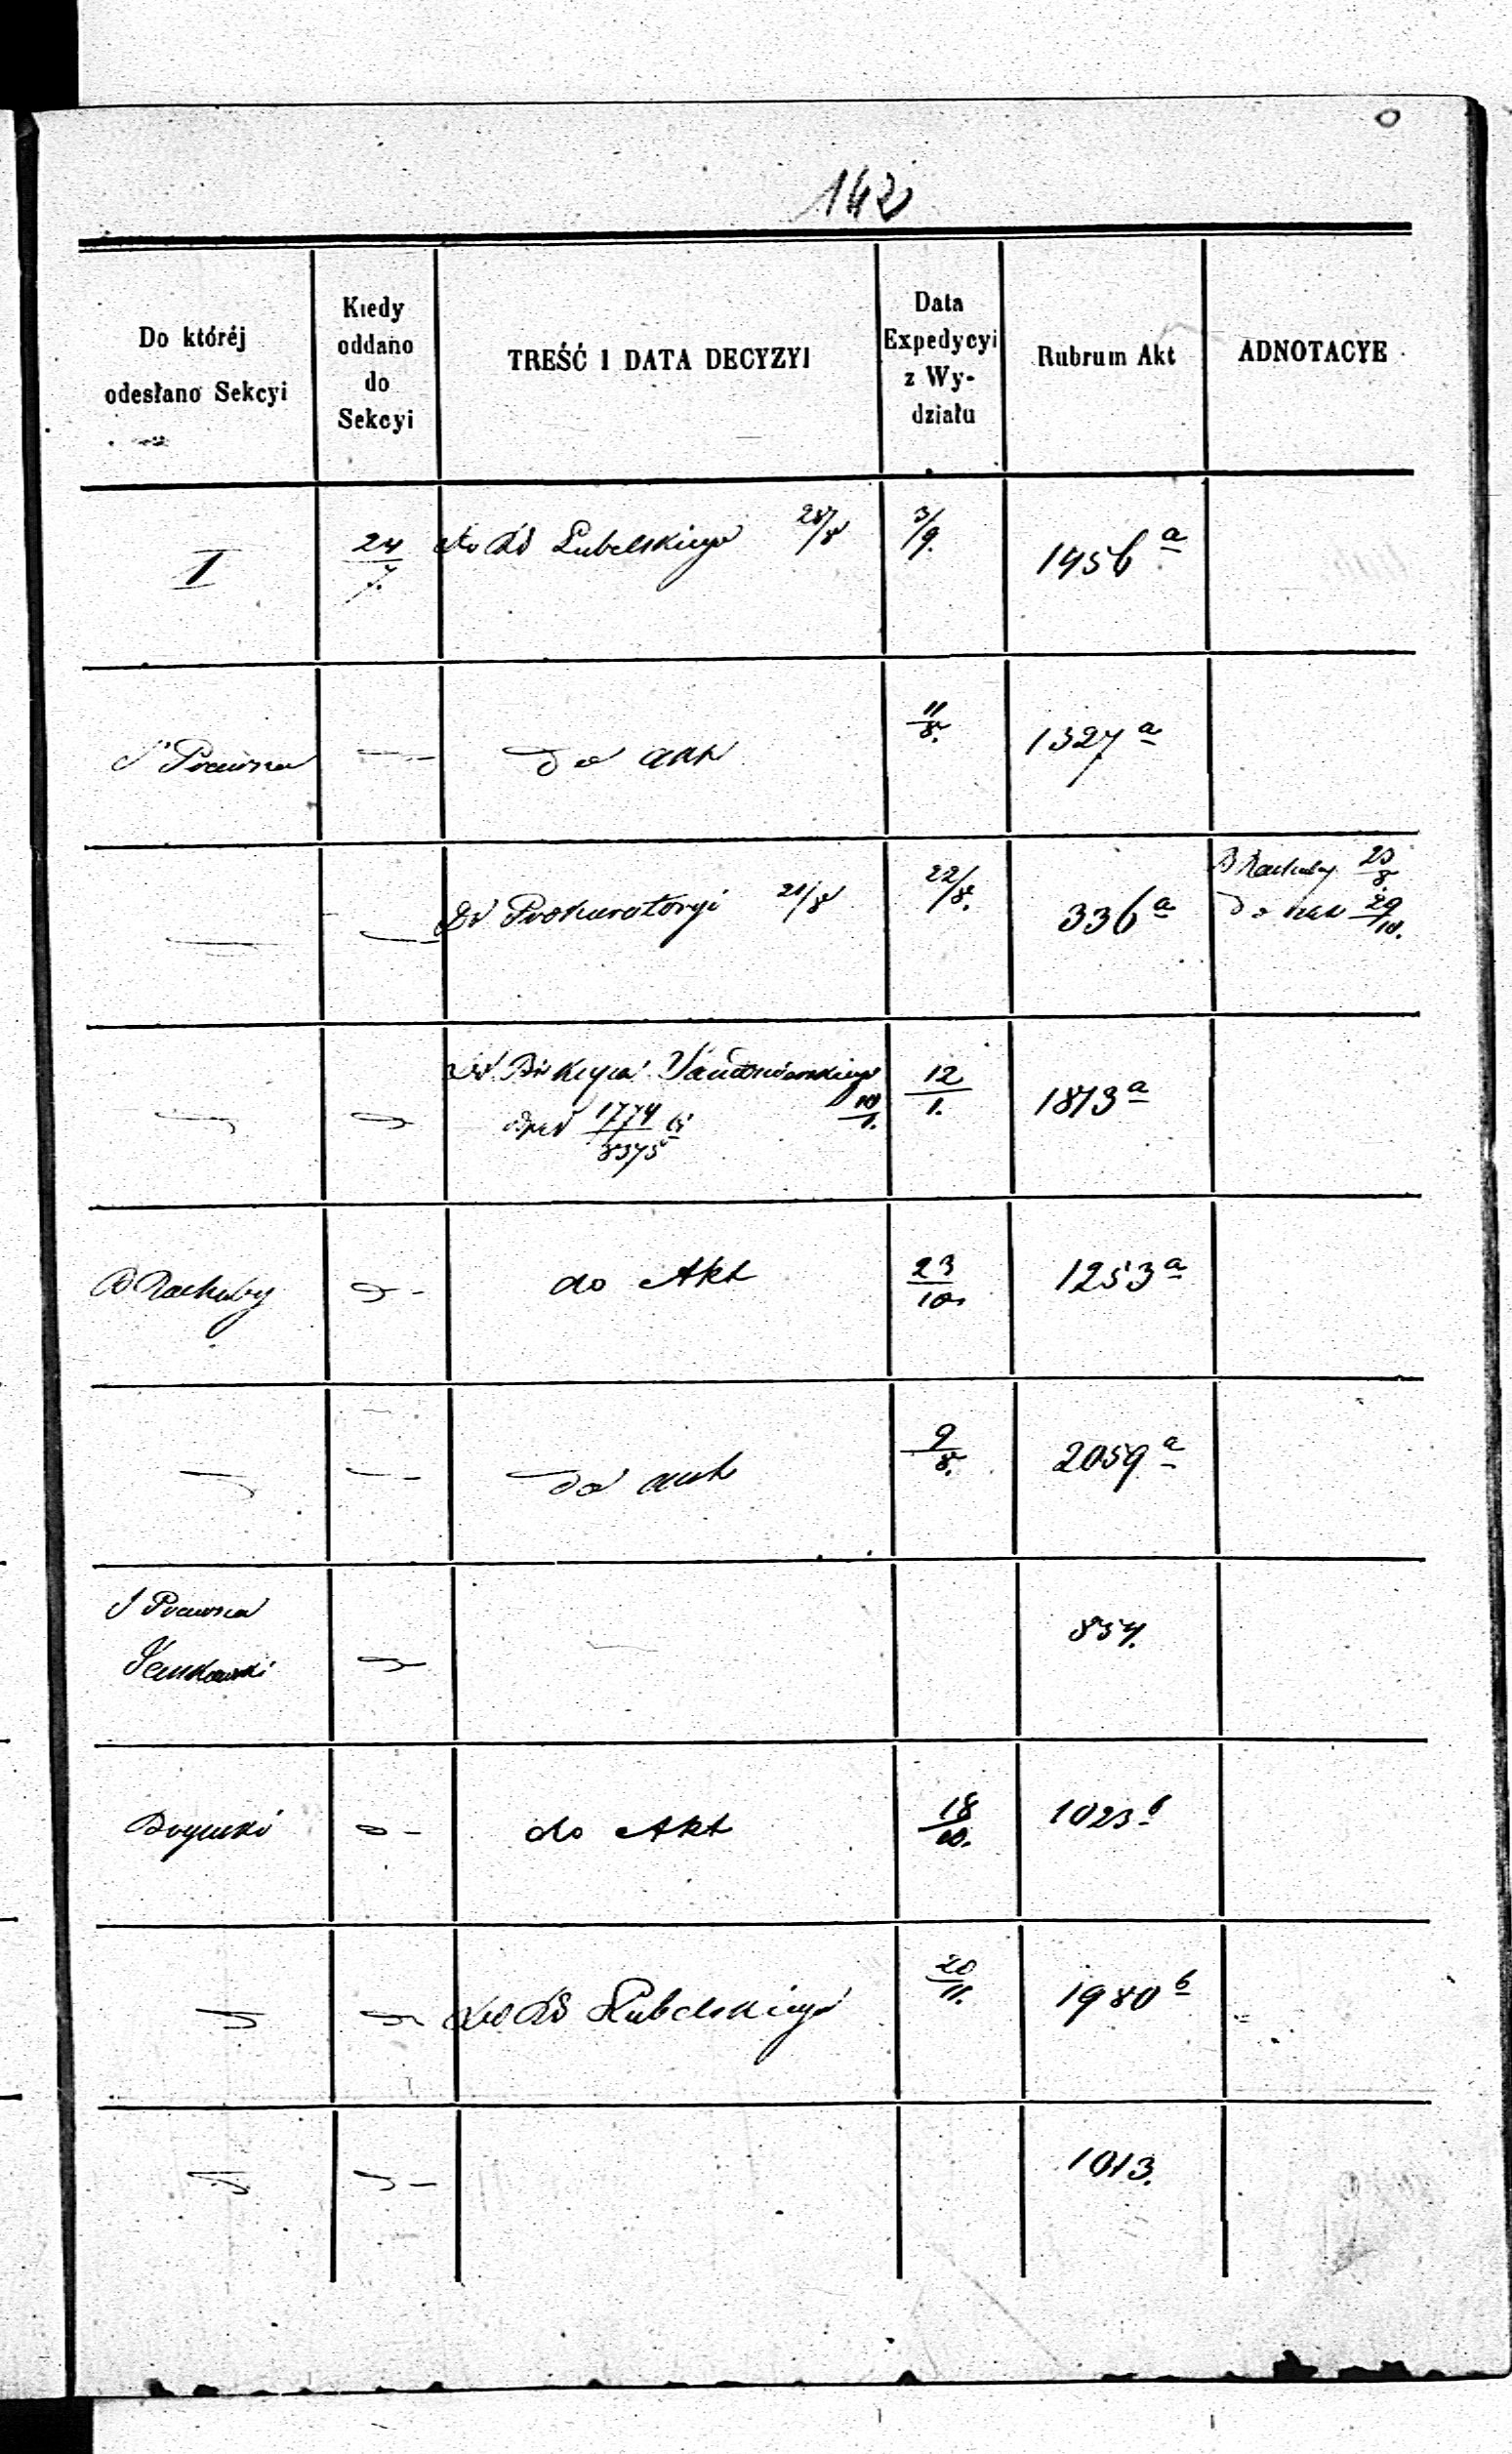 142
Do któréj odesłano Sekcyi
Kiedy oddano do Sekcyi
TREŚĆ I DATA DECYZYI
Data Expedycyi z Wydziału
Rubrum Akt
ADNOTACYE
I 24/7. do Lubelskiego 28/8 3/9. 1456 a
S Prawna do akt 11/8. 1327 a
Do Prokuratoryi 21/8 22/8. 336 a B Rachuby 23/8.
do 29/10.
10/1. 12/1. 1873 a
1774/8375
B Rachuby do Akt 23/10. 1253 a
do akt 9/8. 2059 a
S Prawna 854.
do Akt 18/10. 1023 b
Lubelskiego 20/11. 1980 b
1013.